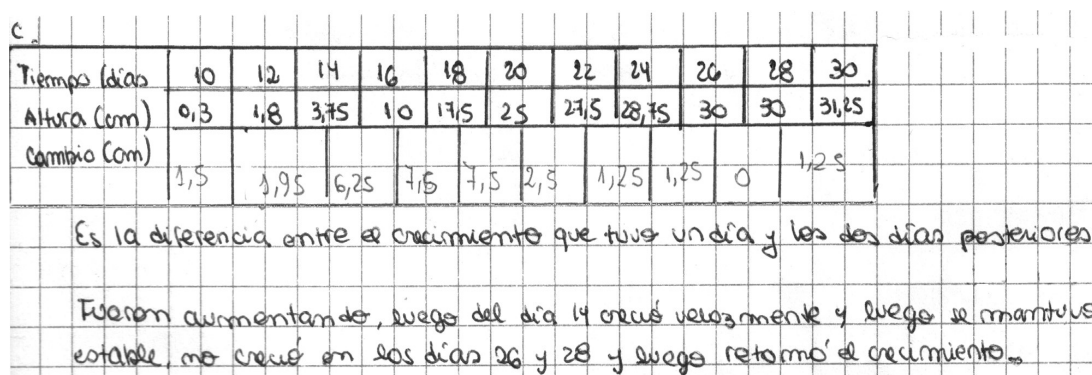 C.
Tiempo (días 10 12 14 16 18 20 22 24 26 28 30
Altura (cm) 0,3 1,8 3,75 10 17,5 25 27,5 28,75 30 30 31,25
Cambio (cm) 1,5 1,95 6,25 7,5 7,5 2,5 1,25 1,25 0 1,25
Es la diferencia entre el crecimiento que tuvo un día y los dos días posteriores
Fueron aumentando, luego del día 14 creció velozmente y luego se mantuvo
estable, no creció en los días 26 y 28 y luego retomó el crecimiento.